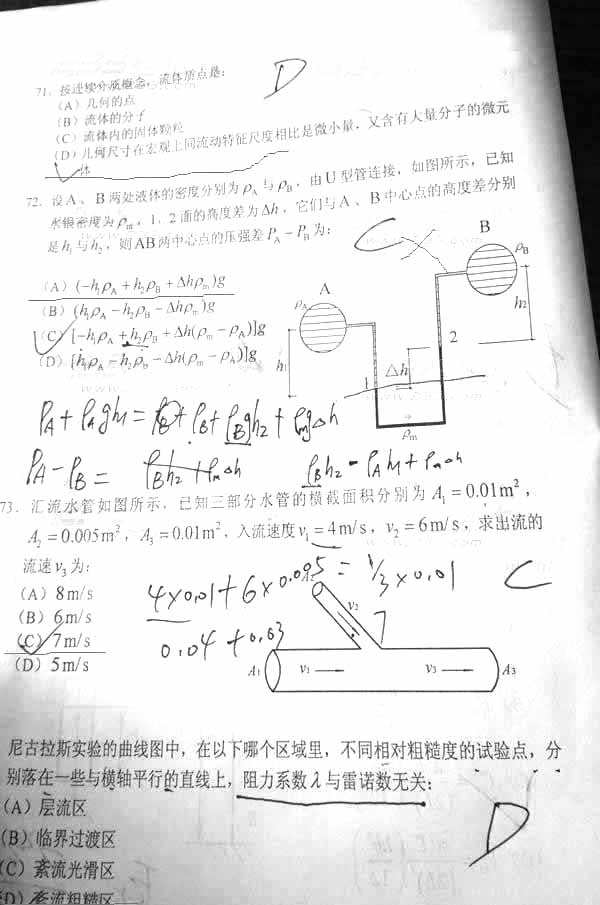 71. 按连续介质概念，流体质点是：
D
(A) 几何的点
(B) 流体的分子
(C) 流体内的固体颗粒
(D) 几何尺寸在宏观上同流动特征尺度相比是微小量，又含有大量分子的微元
体
72. 设A、B两处液体的密度分别为ρA与ρB，由U型管连接，如图所示，已知
水银密度为ρm，1、2面的高度差为Δh，它们与A、B中心点的高度差分别
是h1与h2，则AB两中心点的压强差PA－PB为：
C
(A) (-h1ρA+h2ρB+Δhρm)g
(B) (h1ρA-h2ρB-Δhρm)g
(C) [-h1ρA+h2ρB+Δh(ρm-ρA)]g
(D) [h1ρA-h2ρB-Δh(ρm-ρA)]g
A
B
ρA
ρB
h1
h2
1
2
Δh
ρm
PA+ρAgh1=
PB+ρBgh2+ρmgΔh
PA-PB=
ρBh2+ρmΔh
ρBh2-ρAh1+ρmΔh
73. 汇流水管如图所示，已知三部分水管的横截面积分别为A1=0.01m²，
A2=0.005m²，A3=0.01m²，入流速度v1=4m/s，v2=6m/s，求出流的
流速v3为：
C
(A) 8m/s
(B) 6m/s
(C) 7m/s
(D) 5m/s
4×0.01+6×0.005=V3×0.01
0.04+0.03
7
A2
v2
A1
v1
v3
A3
尼古拉斯实验的曲线图中，在以下哪个区域里，不同相对粗糙度的试验点，分
别落在一些与横轴平行的直线上，阻力系数λ与雷诺数无关：
D
(A) 层流区
(B) 临界过渡区
(C) 紊流光滑区
(D) 紊流粗糙区